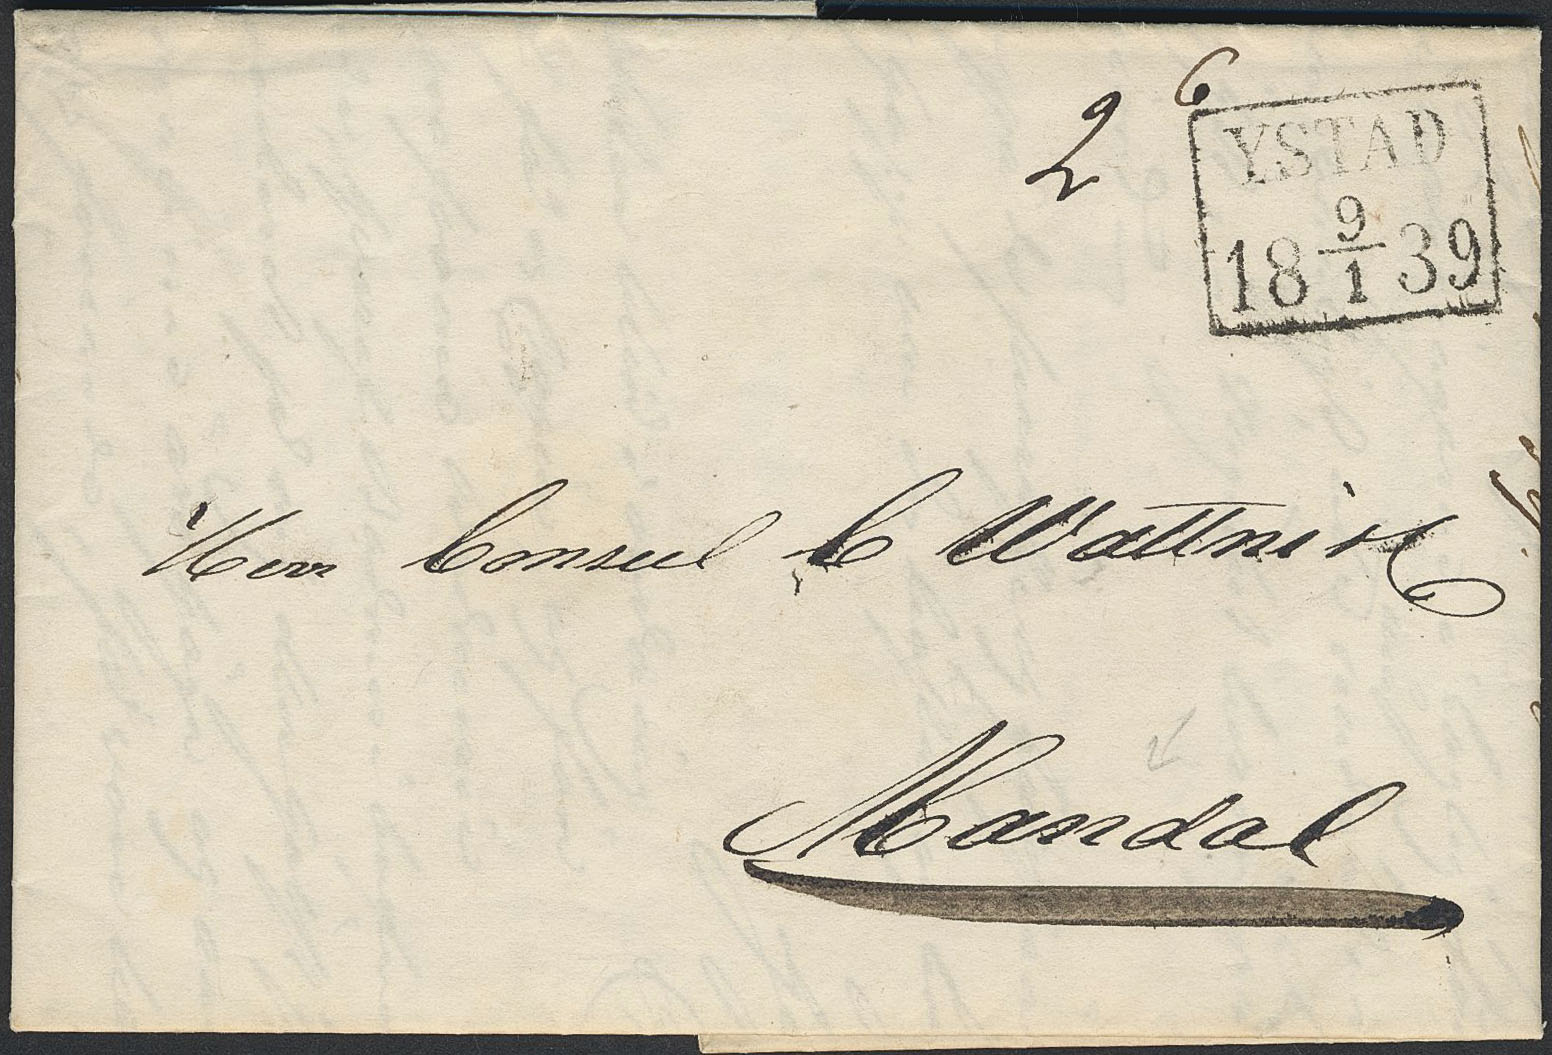 6
2
YSTAD
18 9/1 39
Herr Consul C Wattne
Mandal